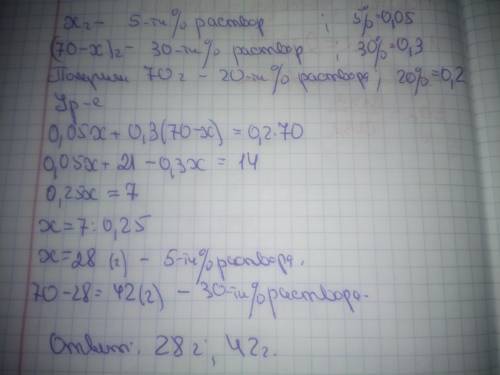 x г - 5-ти% раствор ; 5% = 0,05
(70-x) г - 30-ти% раствор ; 30% = 0,3
Получили 70 г - 20-ти% раствора; 20% = 0,2
Ур-е
0,05x + 0,3(70-x) = 0,2·70
0,05x + 21 - 0,3x = 14
0,25x = 7
x = 7 : 0,25
x = 28 (г) - 5-ти% раствора.
70-28 = 42 (г) - 30-ти% раствора.
Ответ: 28 г ; 42 г.